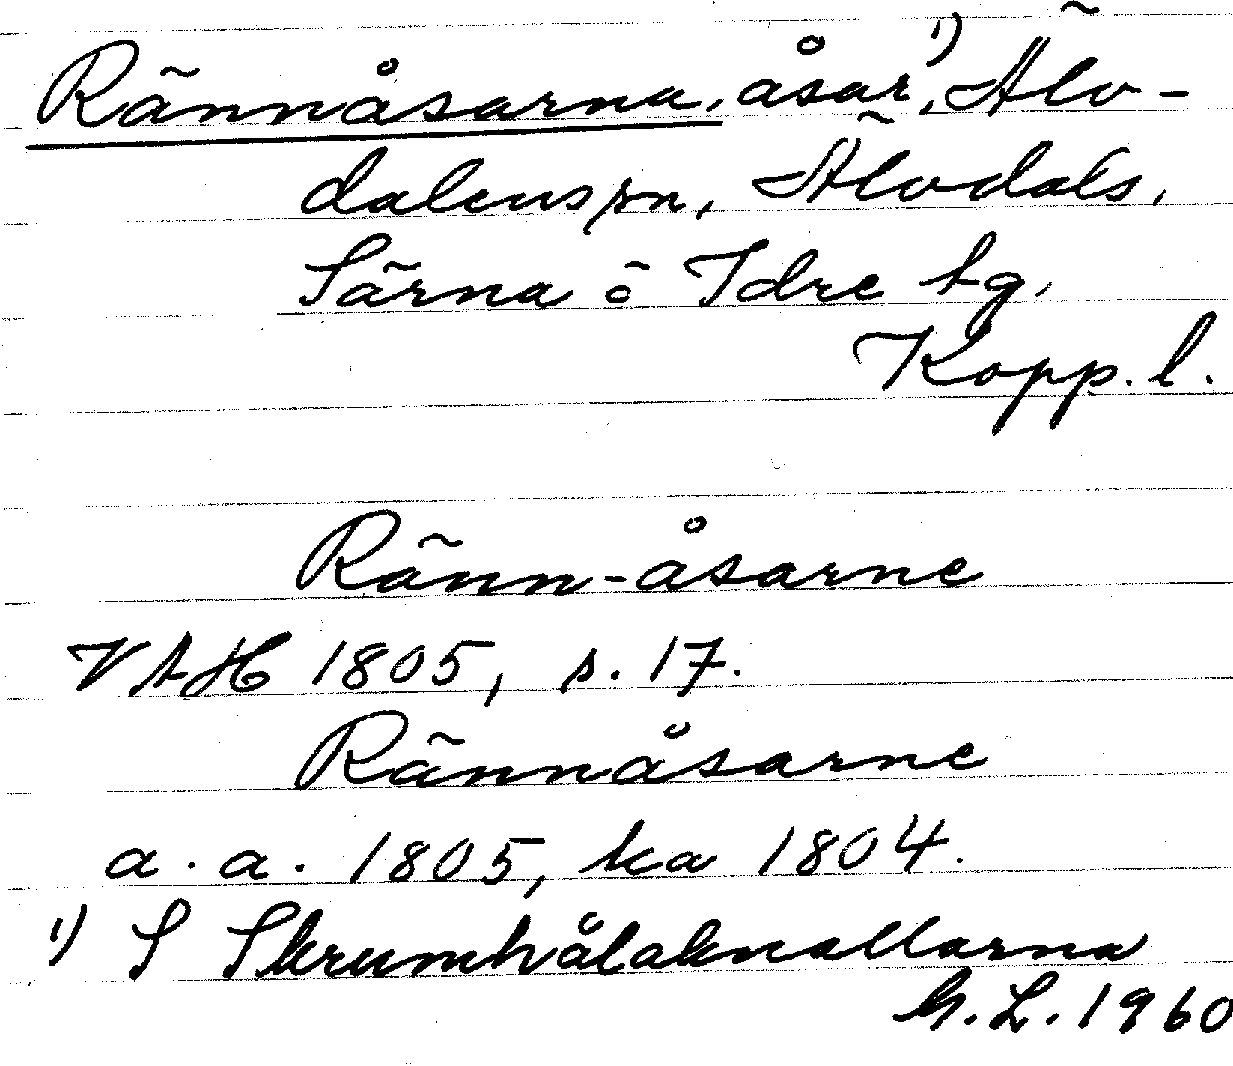 Rännåsarna, åsar,¹) Älv-
dalens sn, Älvdals,
Särna o Idre tg,
Kopp. l.
Ränn-åsarne
VAH 1805, s. 17.
Rännåsarne
a. a. 1805, ka 1804.
¹) S Skrumhålaknallarna
G. L. 1960